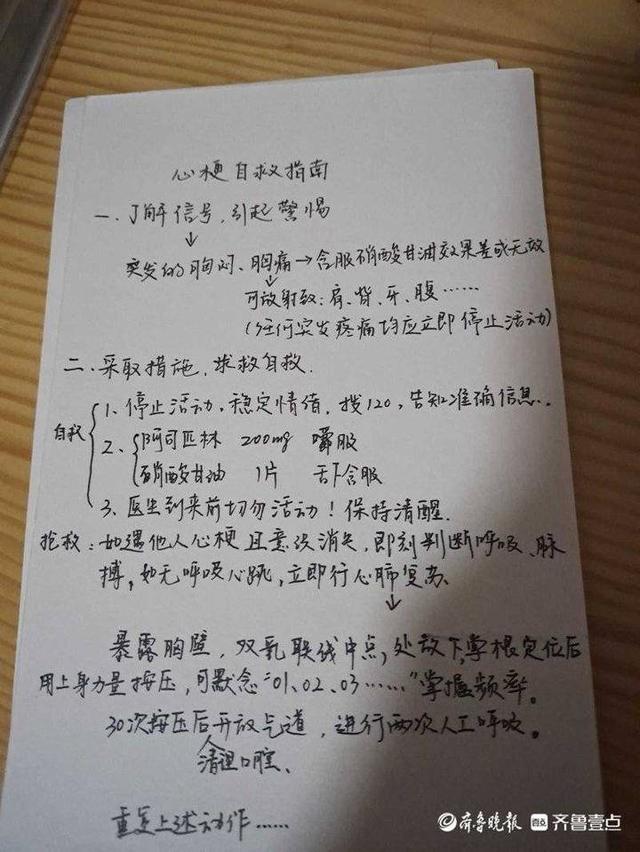 心梗自救指南
一、了解信号,引起警惕
↓
突发的胸闷、胸痛→含服硝酸甘油效果差或无效
↓
可放射致:肩、背、牙、腹……
(任何突发疼痛均应立即停止活动)
二、采取措施,求救自救.
自救
1、停止活动,稳定情绪,拨120,告知准确信息.
2、阿司匹林 200mg 嚼服
硝酸甘油 1片 舌下含服
3、医生到来前切勿活动!保持清醒.
抢救:如遇他人心梗且意识消失,即刻判断呼吸、脉
搏,如无呼吸心跳,立即行心肺复苏
↓
暴露胸壁,双乳联线中点,处放下掌根定位后
用上身力量按压,可默念"01、02、03……"掌握频率。
30次按压后开放气道,进行两次人工呼吸。
清理口腔、
重复上述动作……
齐鲁晚报 齐鲁壹点